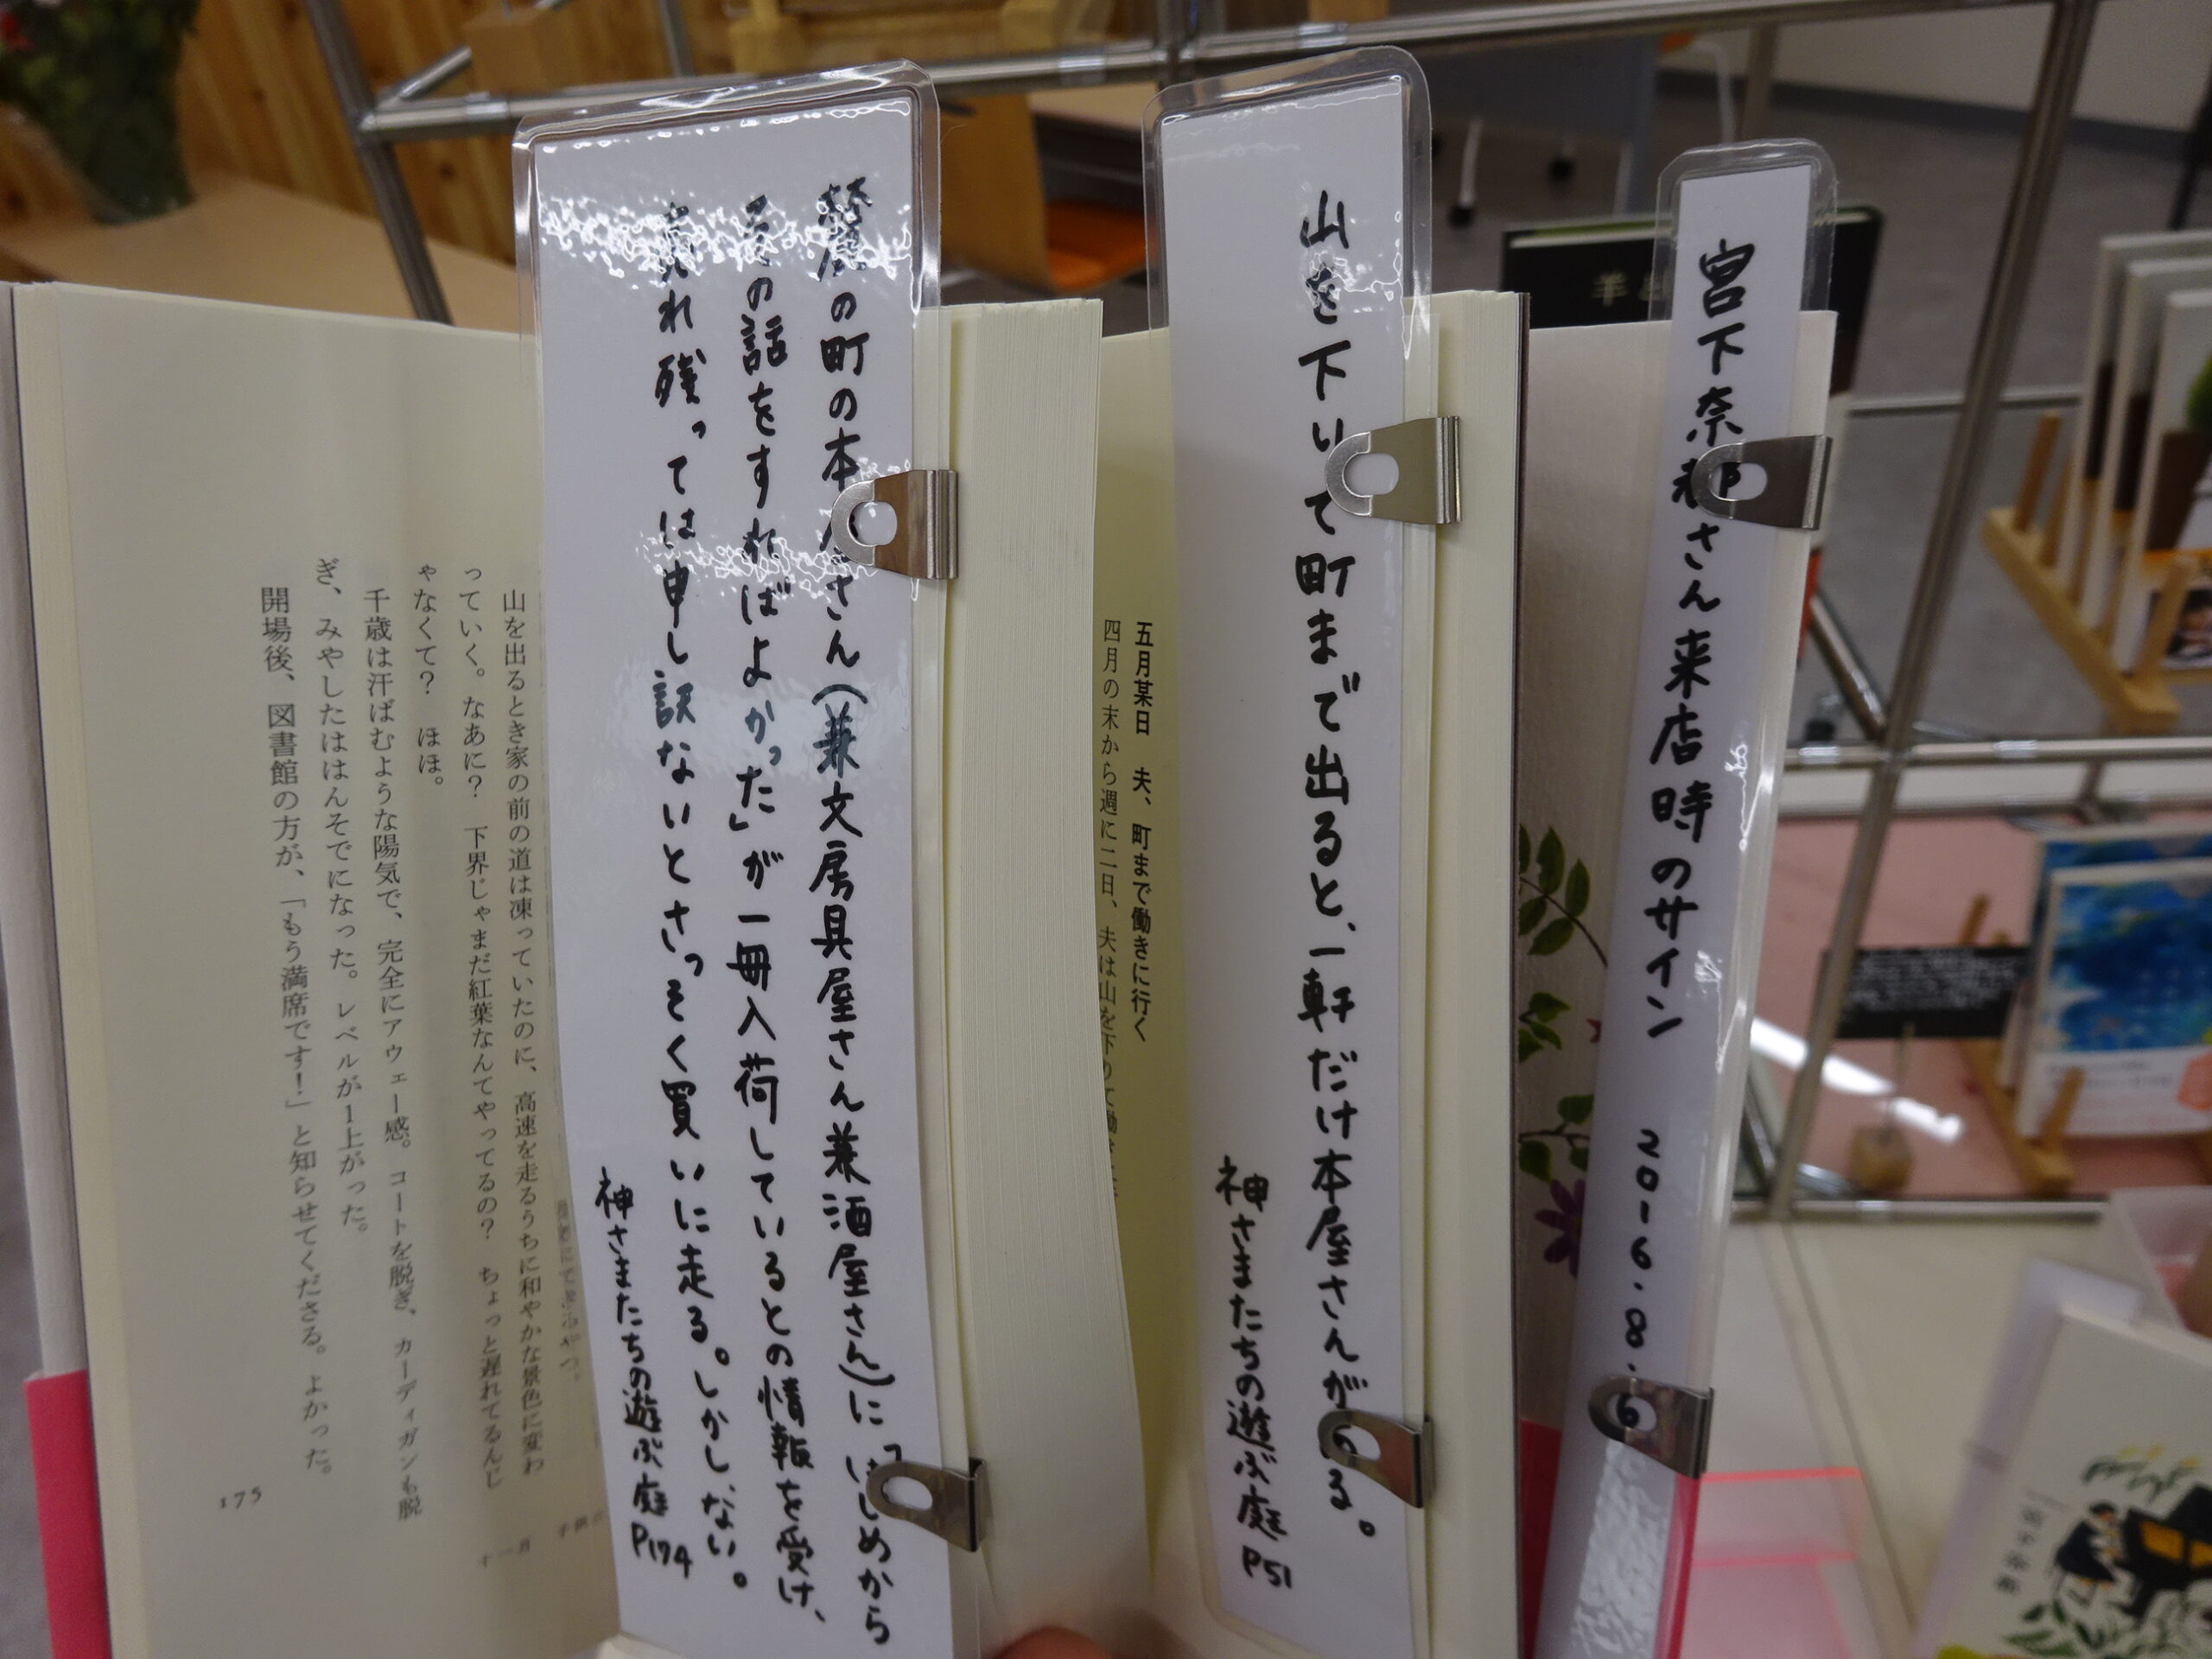 宮下奈都さん来店時のサイン 2016.8.6
山を下りて町まで出ると、一軒だけ本屋さんがある。
神さまたちの遊ぶ庭 P51
五月某日 夫、町まで働きに行く
四月の末から週に二日、夫は山を下りて働き
麓の町の本屋さん(兼文房具屋さん兼酒屋さん)に「はじめから
その話をすればよかった」が一冊入荷しているとの情報を受け、
売れ残っては申し訳ないとさっそく買いに走る。しかし、ない。
神さまたちの遊ぶ庭 P174
山を出るとき家の前の道は凍っていたのに、高速を走るうちに和やかな景色に変わ
っていく。なあに? 下界じゃまだ紅葉なんてやってるの? ちょっと遅れてるんじ
ゃなくて? ほほ。
千歳は汗ばむような陽気で、完全にアウェー感。コートを脱ぎ、カーディガンも脱
ぎ、みやしたははんそでになった。レベルが1上がった。
開場後、図書館の方が、「もう満席です!」と知らせてくださる。よかった。
175
十一月